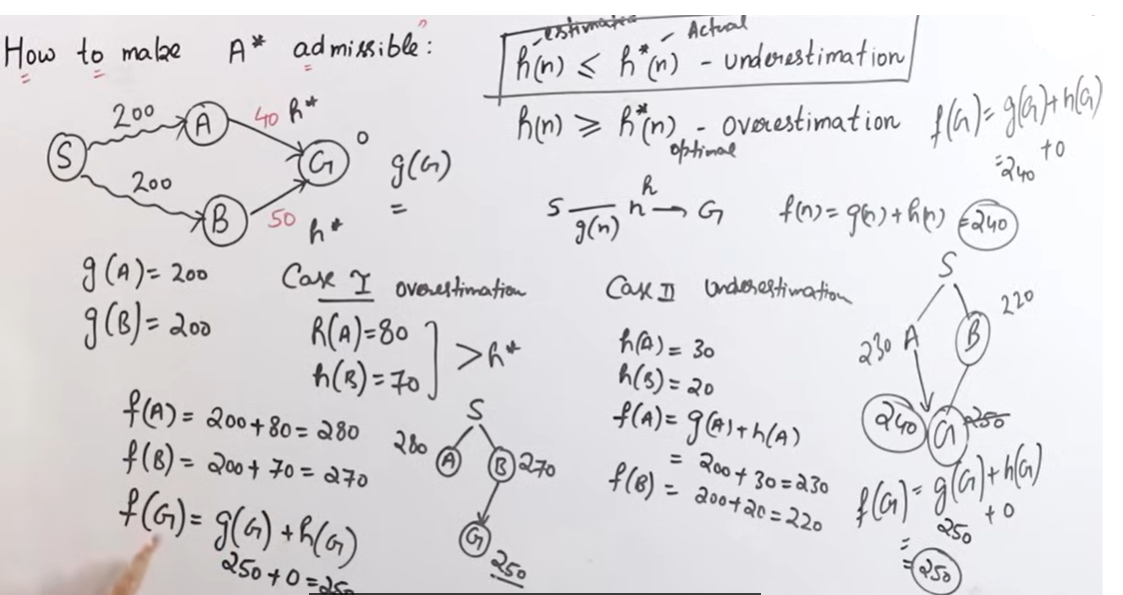 How to make A* admissible:
estimated
Actual
h(n) ≤ h*(n) - underestimation
h(n) ≥ h*(n) - overestimation
optimal
f(G)= g(G)+h(G)
=240 +0
200
A
40 h*
S
G
0
g(G)
=
200
B
50 h*
S g(n) n h → G
f(n) = g(n) + h(n) =240
g(A) = 200
g(B) = 200
Case I overestimation
h(A)=80
h(B)=70
>h*
f(A) = 200+80 = 280
f(B) = 200+70 = 270
f(G) = g(G) + h(G)
250+0=250
S
280 A
B 270
G 250
Case II Underestimation
h(A) = 30
h(B) = 20
f(A) = g(A)+h(A)
= 200+30=230
f(B) = 200+20=220
S
220
230 A
B
240
G
250
f(G) = g(G)+h(G)
250 +0
=
=250